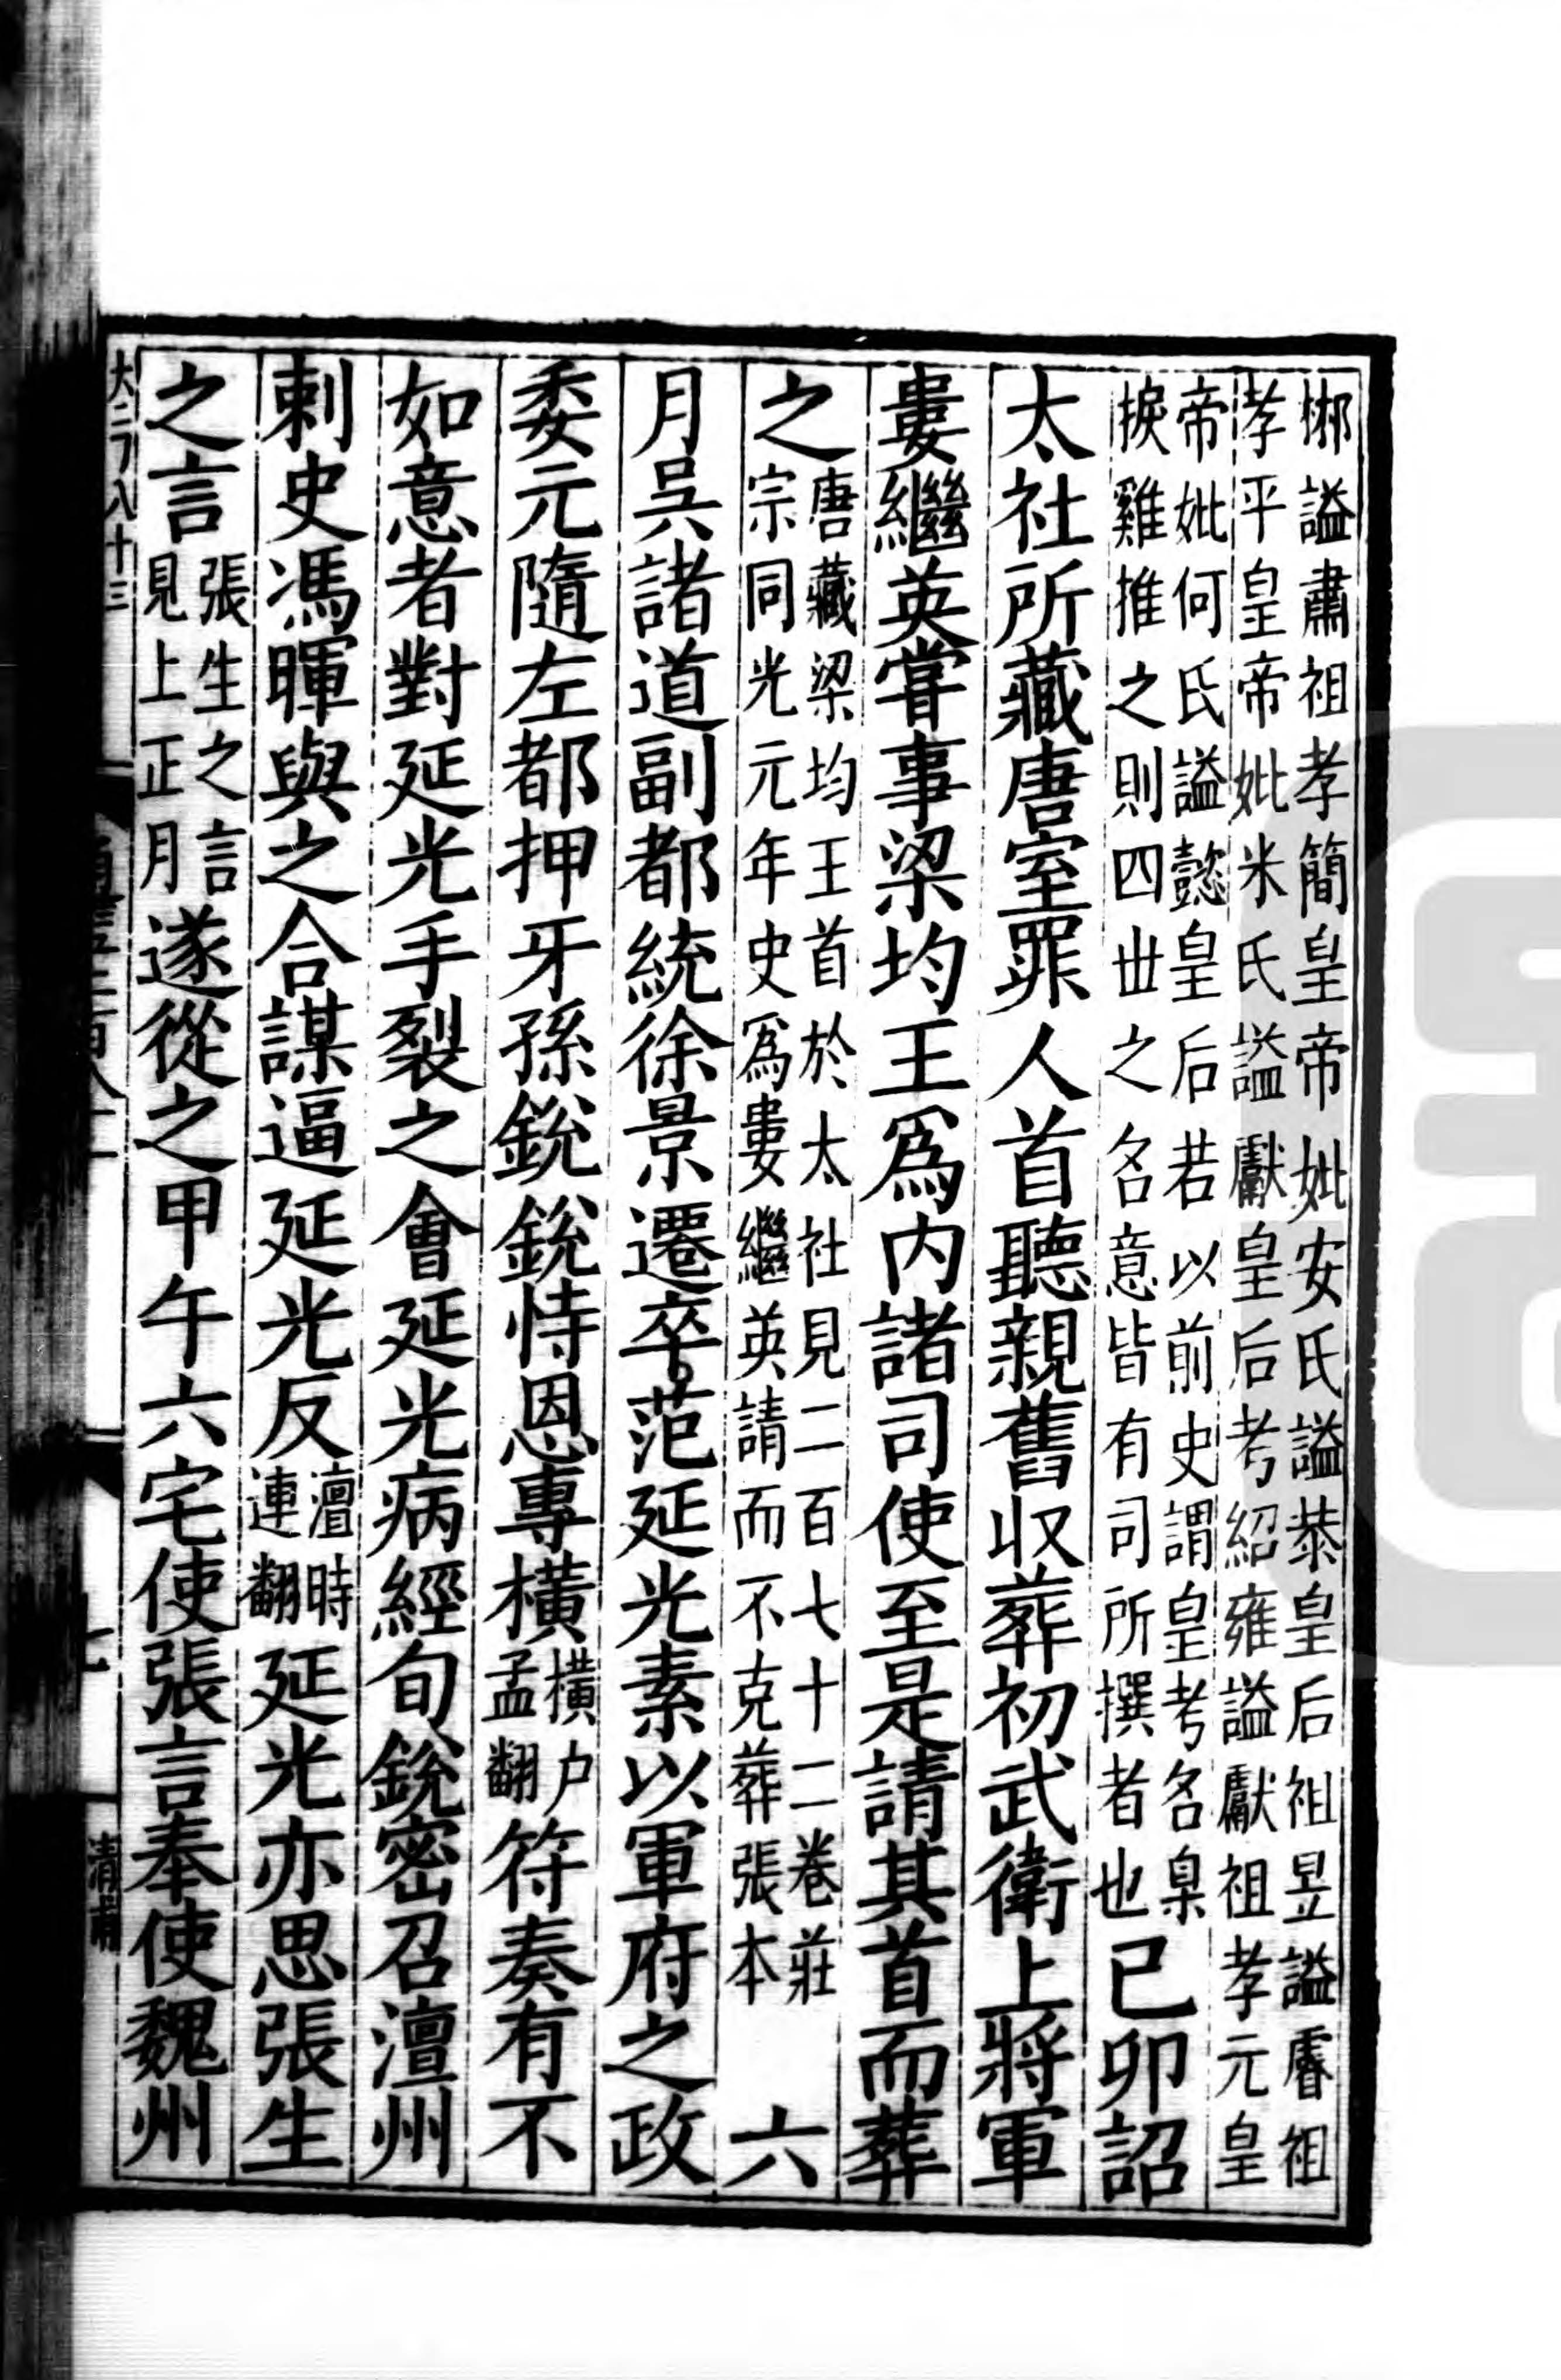 郴謚肅祖孝簡皇帝妣安氏謚恭皇后祖昱謚睿祖
孝平皇帝妣米氏謚獻皇后考紹雍謚獻祖孝元皇
帝妣何氏謚懿皇后若以前史謂皇考名臬
捩雞推之則四世之名意皆有司所撰者也
己卯詔
太社所藏唐室罪人首聽親舊収葬初武衛上將軍
婁繼英嘗事梁均王爲内諸司使至是請其首而葬
之
唐藏梁均王首於太社見二百七十二巻莊
宗同光元年史爲婁繼英請而不克葬張本
六
月吳諸道副都統徐景遷卒。范延光素以軍府之政
委元隨左都押牙孫銳銳恃恩專橫
橫户
孟翻
符奏有不
如意者對延光手裂之會延光病經旬銳密召澶州
刺史馮暉與之合謀逼延光反
澶時
連翻
延光亦思張生
之言
張生之言
見上正月
遂從之甲午六宅使張言奉使魏州
七
清甫